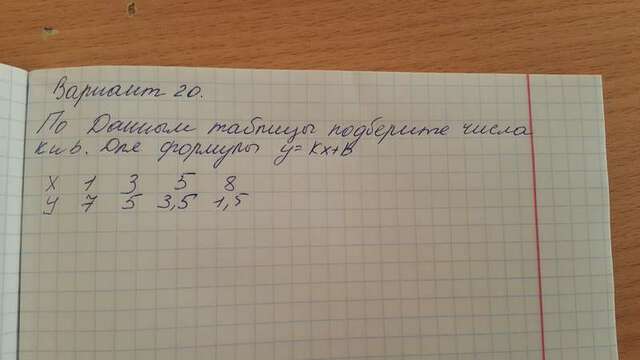 Вариант 20.
По данным таблицы подберите числа
k и b. Для формулы y=kx+b
x 1 3 5 8
y 7 5 3,5 1,5